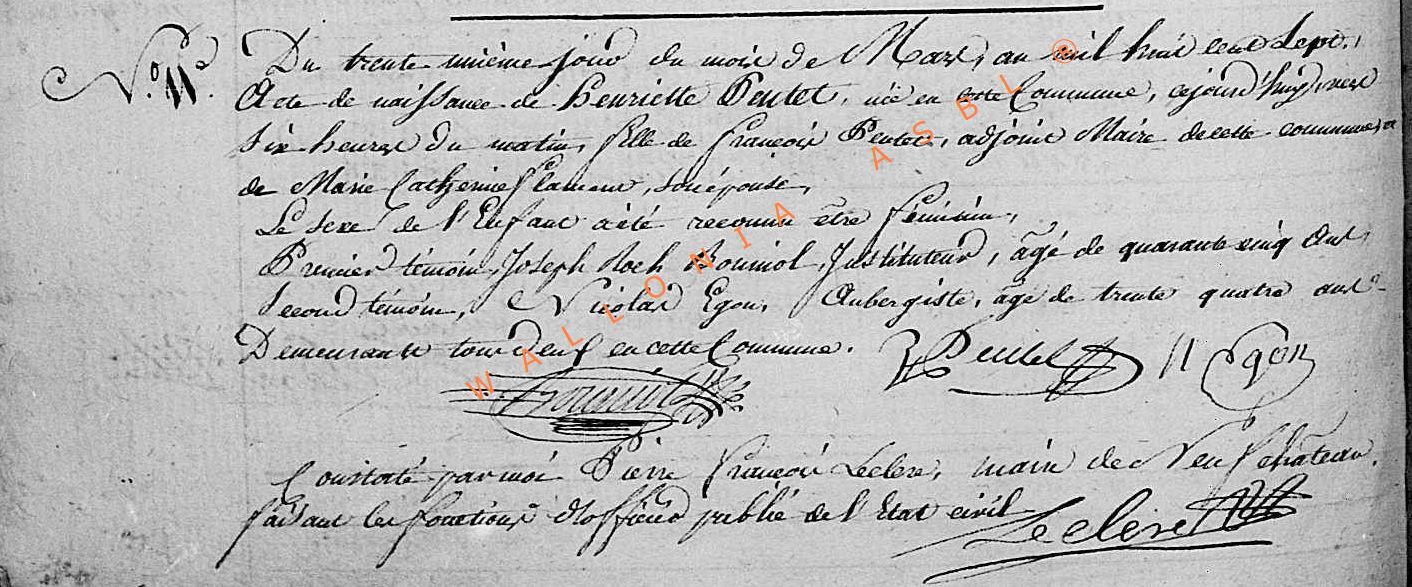 N.° 11.e
Du trente unième jour du mois de Mars, an mil huit cent Sept.
Acte de naissance de Henriette Pentet, née en cette Commune, cejourd'huy, vers
Six heures du matin, fille de François Pentet, adjoint Maire de cette commune, et
de Marie Catherine Flamant, son épouse,
Le Sexe de l'Enfant a été reconnu être féminin,
Premier témoin, Joseph Roch Bouniol, Instituteur, âgé de quarante cinq ans,
Second témoin, Nicolas Egon, Aubergiste, âgé de trente quatre ans
Demeurants tous deux en cette Commune. Pentet N Egon
Bouniol
Constaté par moi Pierre François Leclere, maire de Neufchâteau,
faisant les fonctions d'officier public de l'Etat civil
Leclere
WALLONIA ASBL ©